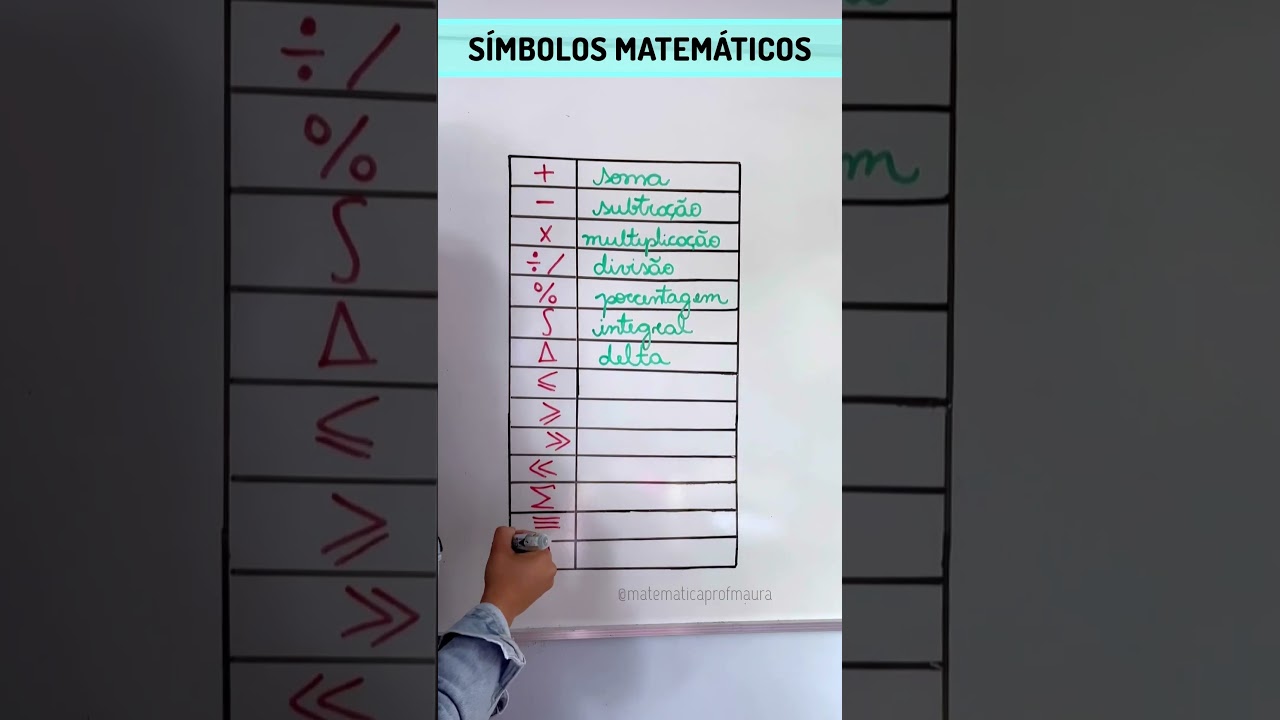 SÍMBOLOS MATEMÁTICOS
+ soma
- subtração
x multiplicação
÷ / divisão
% porcentagem
∫ integral
Δ delta
⩽
⩾
≫
≪
Σ
≣
@matematicaprofmaura